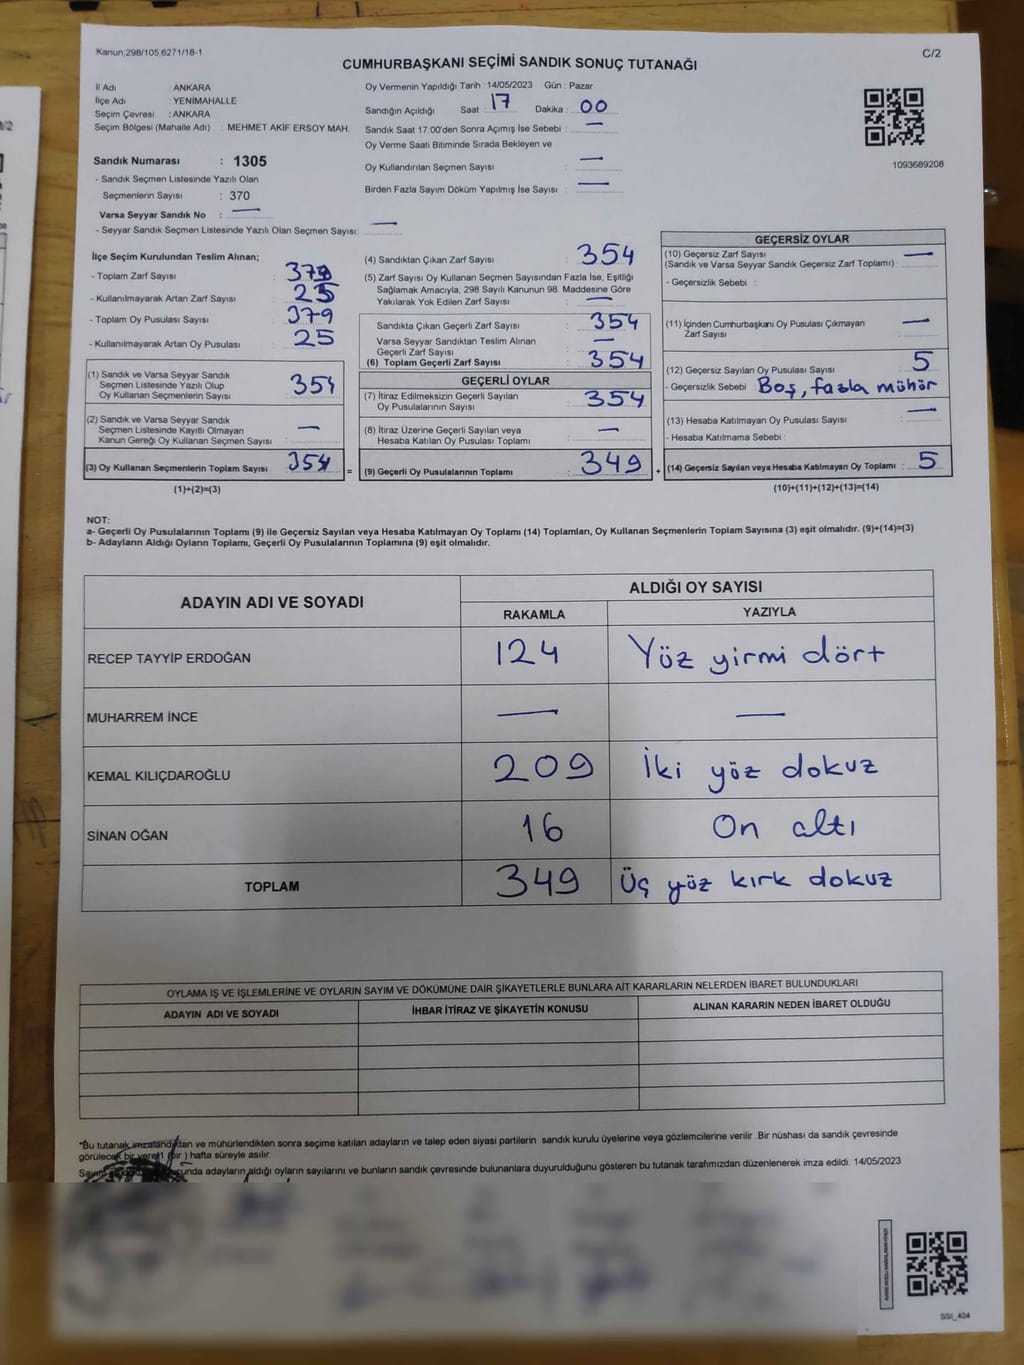 Kanun;298/105,6271/18-1
C/2
CUMHURBAŞKANI SEÇİMİ SANDIK SONUÇ TUTANAĞI
İl Adı : ANKARA
İlçe Adı : YENİMAHALLE
Seçim Çevresi : ANKARA
Seçim Bölgesi (Mahalle Adı) : MEHMET AKİF ERSOY MAH.
Sandık Numarası : 1305
- Sandık Seçmen Listesinde Yazılı Olan
Seçmenlerin Sayısı : 370
Varsa Seyyar Sandık No : —
- Seyyar Sandık Seçmen Listesinde Yazılı Olan Seçmen Sayısı: —
Oy Vermenin Yapıldığı Tarih : 14/05/2023 Gün : Pazar
Sandığın Açıldığı Saat : 17 Dakika : 00
Sandık Saat 17:00'den Sonra Açımış İse Sebebi : —
Oy Verme Saati Bitiminde Sırada Bekleyen ve
Oy Kullandırılan Seçmen Sayısı : —
Birden Fazla Sayım Döküm Yapılmış İse Sayısı : —
1093689208
İlçe Seçim Kurulundan Teslim Alınan;
- Toplam Zarf Sayısı : 379
- Kullanılmayarak Artan Zarf Sayısı : 25
- Toplam Oy Pusulası Sayısı : 379
- Kullanılmayarak Artan Oy Pusulası : 25
(1) Sandık ve Varsa Seyyar Sandık
Seçmen Listesinde Yazılı Olup
Oy Kullanan Seçmenlerin Sayısı : 354
(2) Sandık ve Varsa Seyyar Sandık
Seçmen Listesinde Kayıtlı Olmayan
Kanun Gereği Oy Kullanan Seçmen Sayısı : —
(3) Oy Kullanan Seçmenlerin Toplam Sayısı : 354
(1)+(2)=(3)
(4) Sandıktan Çıkan Zarf Sayısı : 354
(5) Zarf Sayısı Oy Kullanan Seçmen Sayısından Fazla İse, Eşitliği
Sağlamak Amacıyla, 298 Sayılı Kanunun 98. Maddesine Göre
Yakılarak Yok Edilen Zarf Sayısı : —
Sandıkta Çıkan Geçerli Zarf Sayısı : 354
Varsa Seyyar Sandıktan Teslim Alınan
Geçerli Zarf Sayısı : —
(6) Toplam Geçerli Zarf Sayısı : 354
GEÇERLİ OYLAR
(7) İtiraz Edilmeksizin Geçerli Sayılan
Oy Pusulalarının Sayısı : 354
(8) İtiraz Üzerine Geçerli Sayılan veya
Hesaba Katılan Oy Pusulası Toplamı : —
= (9) Geçerli Oy Pusulalarının Toplamı : 349 +
GEÇERSİZ OYLAR
(10) Geçersiz Zarf Sayısı : —
(Sandık ve Varsa Seyyar Sandık Geçersiz Zarf Toplamı) :
- Geçersizlik Sebebi :
(11) İçinden Cumhurbaşkanı Oy Pusulası Çıkmayan
Zarf Sayısı : —
(12) Geçersiz Sayılan Oy Pusulası Sayısı : 5
- Geçersizlik Sebebi : Boş, fazla mühör
(13) Hesaba Katılmayan Oy Pusulası Sayısı : —
- Hesaba Katılmama Sebebi :
(14) Geçersiz Sayılan veya Hesaba Katılmayan Oy Toplamı : 5
(10)+(11)+(12)+(13)=(14)
NOT:
a- Geçerli Oy Pusulalarının Toplamı (9) ile Geçersiz Sayılan veya Hesaba Katılmayan Oy Toplamı (14) Toplamları, Oy Kullanan Seçmenlerin Toplam Sayısına (3) eşit olmalıdır. (9)+(14)=(3)
b- Adayların Aldığı Oyların Toplamı, Geçerli Oy Pusulalarının Toplamına (9) eşit olmalıdır.
ADAYIN ADI VE SOYADI ALDIĞI OY SAYISI
RAKAMLA YAZIYLA
RECEP TAYYİP ERDOĞAN 124 Yöz yirmi dört
MUHARREM İNCE — —
KEMAL KILIÇDAROĞLU 209 İki yöz dokuz
SİNAN OĞAN 16 On altı
TOPLAM 349 Üç yöz kırk dokuz
OYLAMA İŞ VE İŞLEMLERİNE VE OYLARIN SAYIM VE DÖKÜMÜNE DAİR ŞİKAYETLERLE BUNLARA AİT KARARLARIN NELERDEN İBARET BULUNDUKLARI
ADAYIN ADI VE SOYADI İHBAR İTİRAZ VE ŞİKAYETİN KONUSU ALINAN KARARIN NEDEN İBARET OLDUĞU
*Bu tutanak imzalandıktan ve mühürlendikten sonra seçime katılan adayların ve talep eden siyasi partilerin sandık kurulu üyelerine veya gözlemcilerine verilir. Bir nüshası da sandık çevresinde
görülecek bir yere1 (bir ) hafta süreyle asılır.
Sayım adayların aldığı oyların sayılarını ve bunların sandık çevresinde bulunanlara duyurulduğunu gösteren bu tutanak tarafımızdan düzenlenerek imza edildi. 14/05/2023
SSI_404